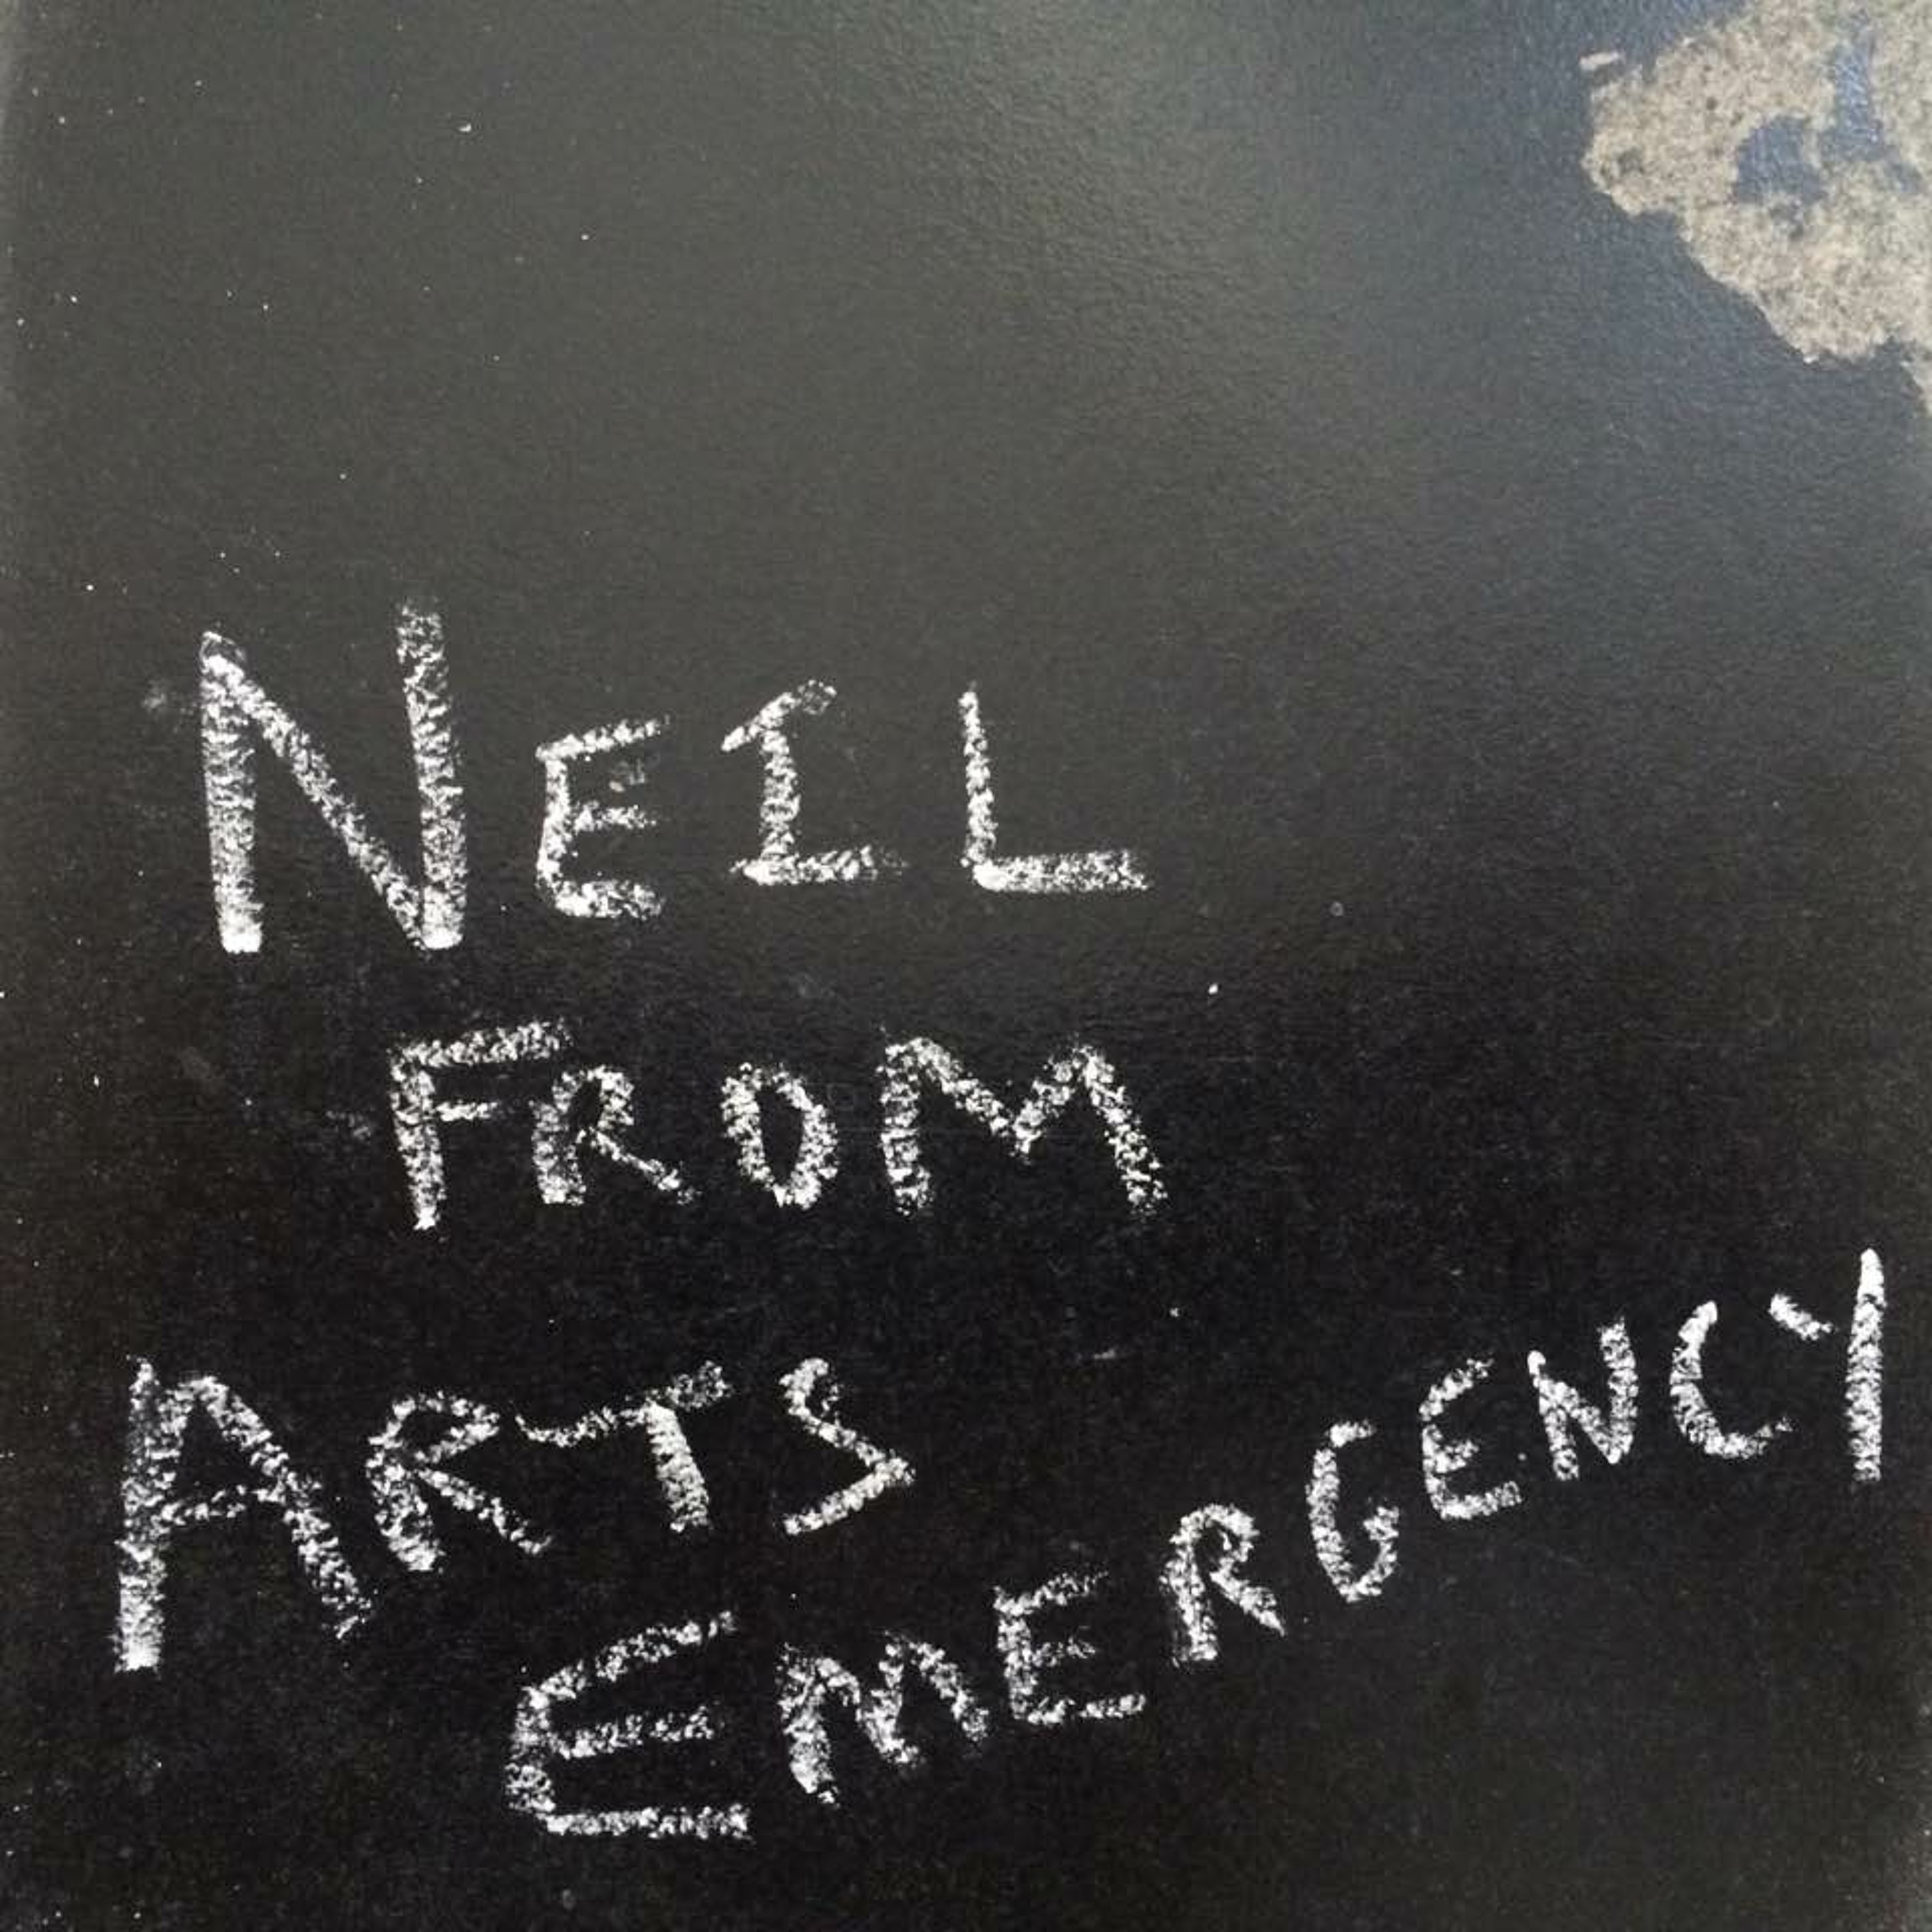 NEIL
FROM
ARTS
EMERGENCY